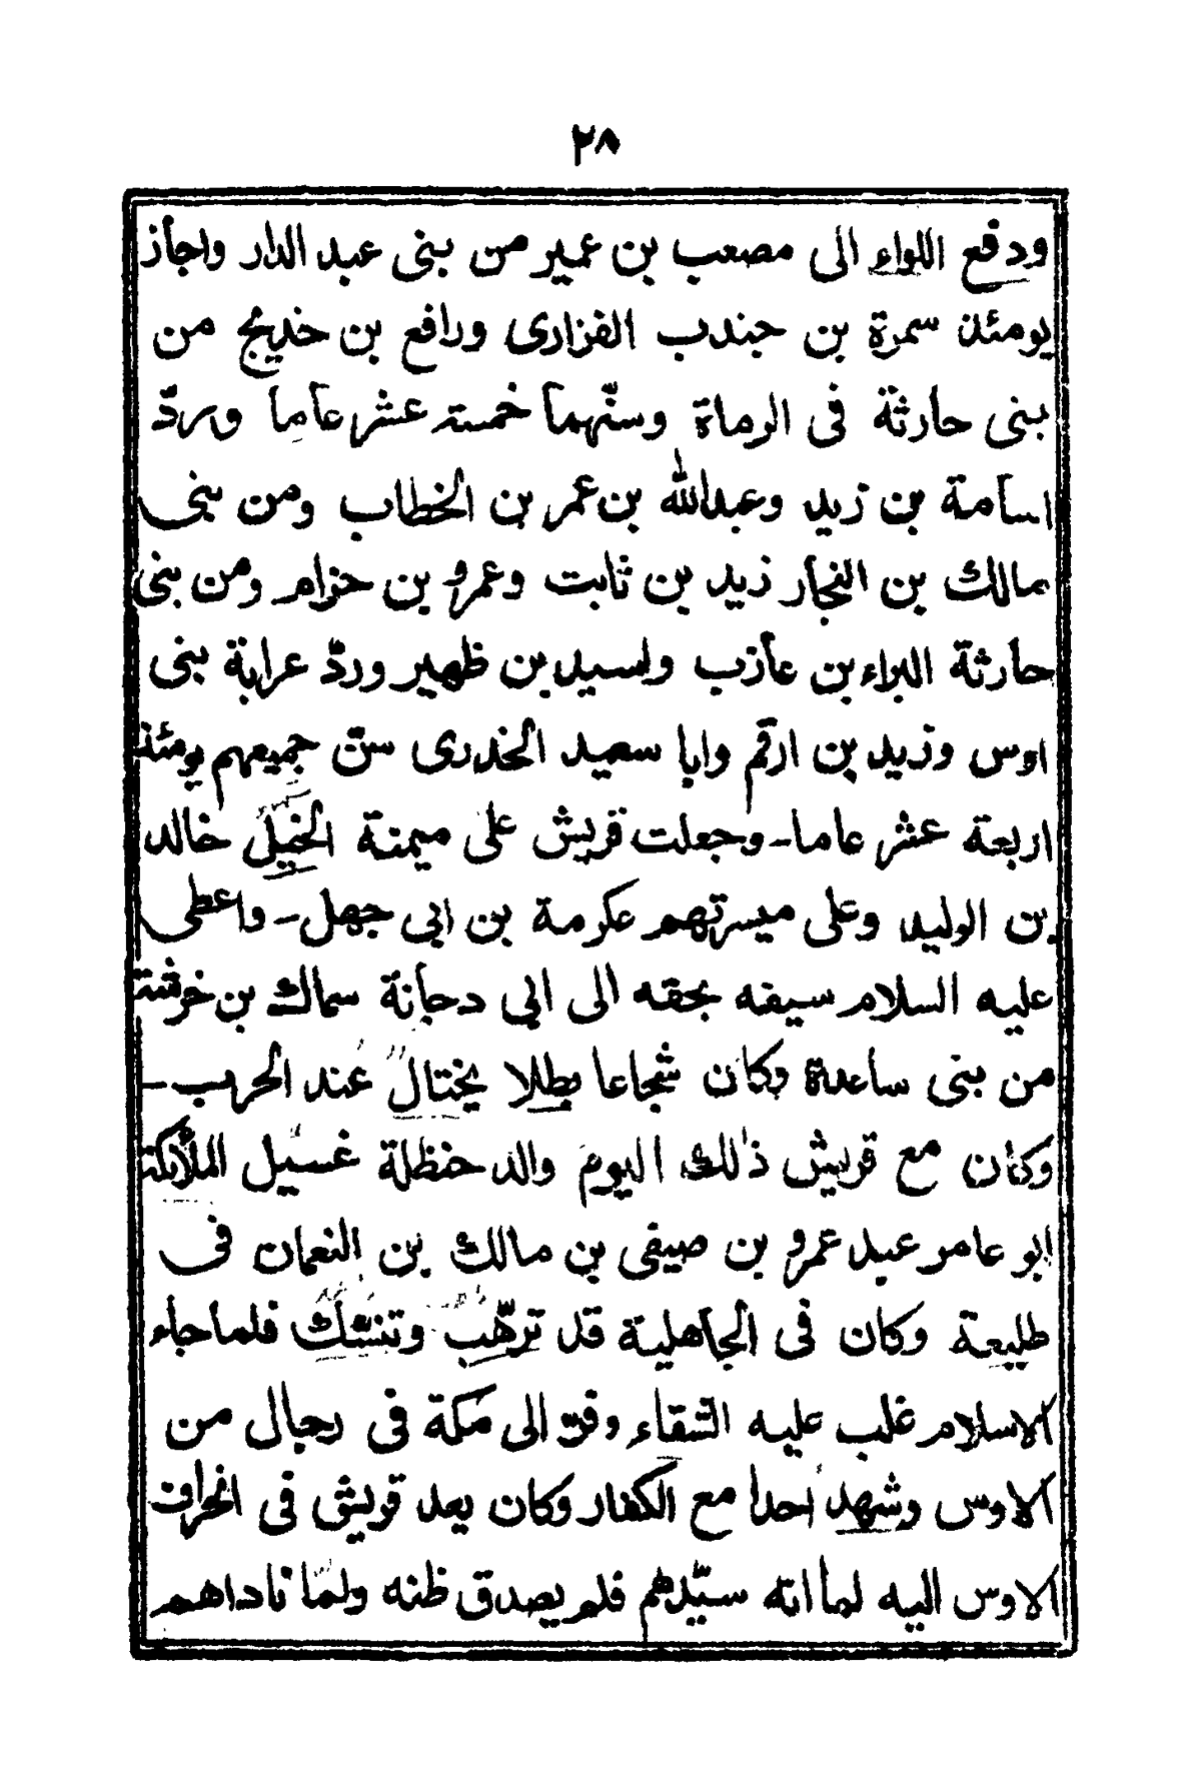 ٢٨
ودفع اللواء الى مصعب بن عمير من بنى عبد الدار واجاز
يومئذ سمرة بن جندب الفزارى ورافع بن خديج من
بنى حارثة فى الرماة وسنّهما خمسة عشر عاما وردّ
اسامة بن زيد وعبدالله بن عمر بن الخطاب ومن بنى
مالك بن النجار زيد بن ثابت وعمرو بن حزام ومن بنى
حارثة البراء بن عازب واسيد بن ظهير وردّ عرابة بنى
اوس وزيد بن ارقم وابا سعيد الخدرى سنّ جميعهم يومئذ
اربعة عشر عاما - وجعلت قريش على ميمنة الخيل خالد
بن الوليد وعلى ميسرتهم عكرمة بن ابى جهل - واعطى
عليه السلام سيفه بحقه الى ابى دجانة سماك بن خرشة
من بنى ساعدة وكان شجاعا بطلا يختال عند الحرب -
وكان مع قريش ذالك اليوم والد حنظلة غسيل الملائكة
ابو عامر عبد عمرو بن صيفى بن مالك بن النعمان فى
طليعة وكان فى الجاهلية قد ترهّب وتنسّك فلما جاء
الاسلام غلب عليه الشقاء وفرّ الى مكة فى رجال من
الاوس وشهد احدا مع الكفار وكان يعد قريش فى انحراف
الاوس اليه لما انه سيّدهم فلم يصدق ظنه ولمّا ناداهم